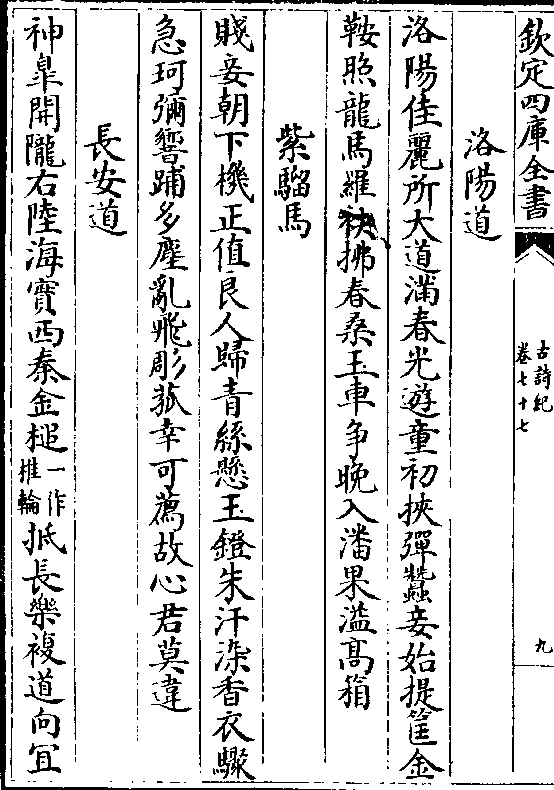 欽定四庫全書
古詩紀
卷七十七
九
洛陽道
洛陽佳麗所大道滿春光遊童初挾彈蠶妾始提筐金
鞍照龍馬羅袂拂春桑玉車争晚入潘果溢高箱
紫騮馬
賤妾朝下機正值良人歸青絲懸玉鐙朱汗染香衣驟
急珂彌響踊多塵亂飛彫菰幸可薦故心君莫違
長安道
神臯開隴右陸海實西秦金槌一作推輪抵長樂複道向宜